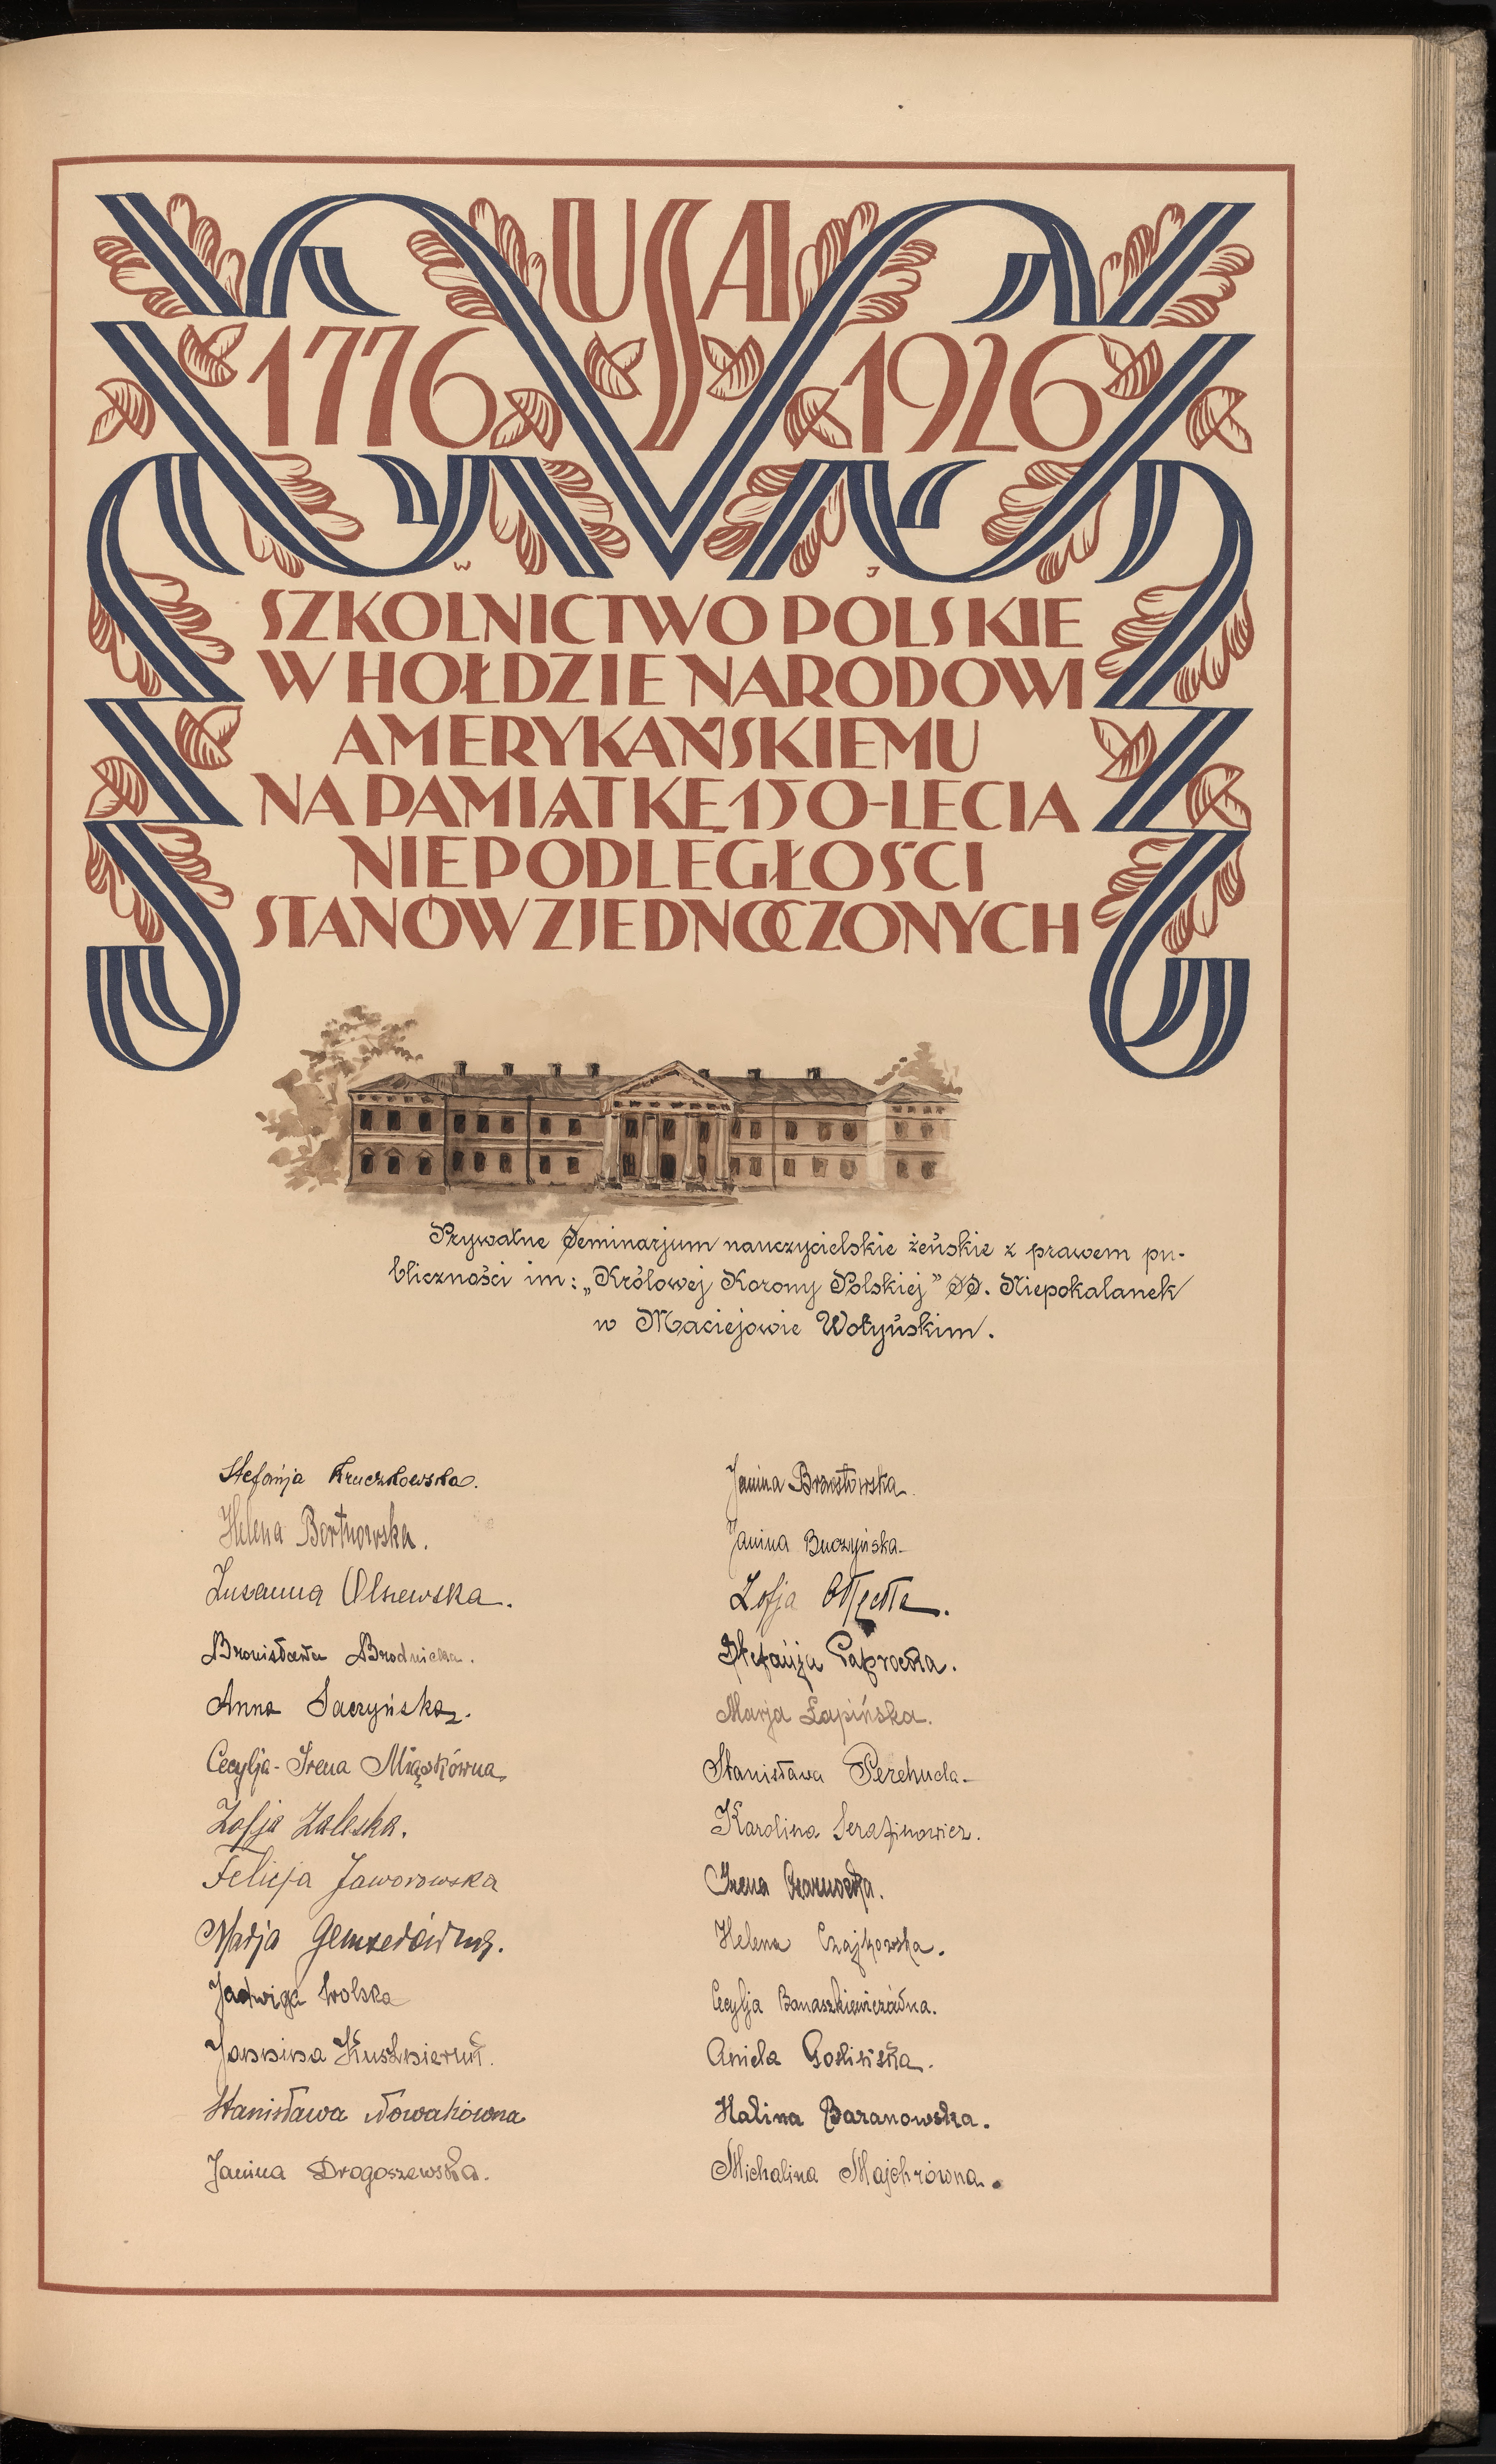 USA
1776 1926
W J
SZKOLNICTWO POLSKIE
W HOŁDZIE NARODOWI
AMERYKAŃSKIEMU
NA PAMIĄTKĘ 150-LECIA
NIEPODLEGŁOŚCI
STANÓW ZJEDNOCZONYCH
Prywatne Seminarjum nauczycielskie żeńskie z prawem pu-
bliczności im: „Królowej Korony Polskiej” SS. Niepokalanek
w Maciejowie Wołyńskim.
Stefanja Kruczkowska.
Helena Bortnowska.
Zuzanna Olszewska.
Bronisława Brodnicka.
Anna Saczyńska.
Cecylja-Irena Miąskówna.
Zofja Zaleska.
Felicja Jaworowska
Marja
Jadwiga Wolska
Jannina
Stanisława Nowakówna
Janina Drogoszewska.
Janina Brzostowska.
Janina Buczyńska
Zofja
Stefanja Paprocka.
Marja Łapińska.
Stanisława Perehuda
Karolina Serafinowicz.
Irena Czarnocka.
Helena Czajkowska.
Cecylja Banaszkiewiczówna.
Aniela Goslińska.
Halina Baranowska.
Michalina Majchrówna.